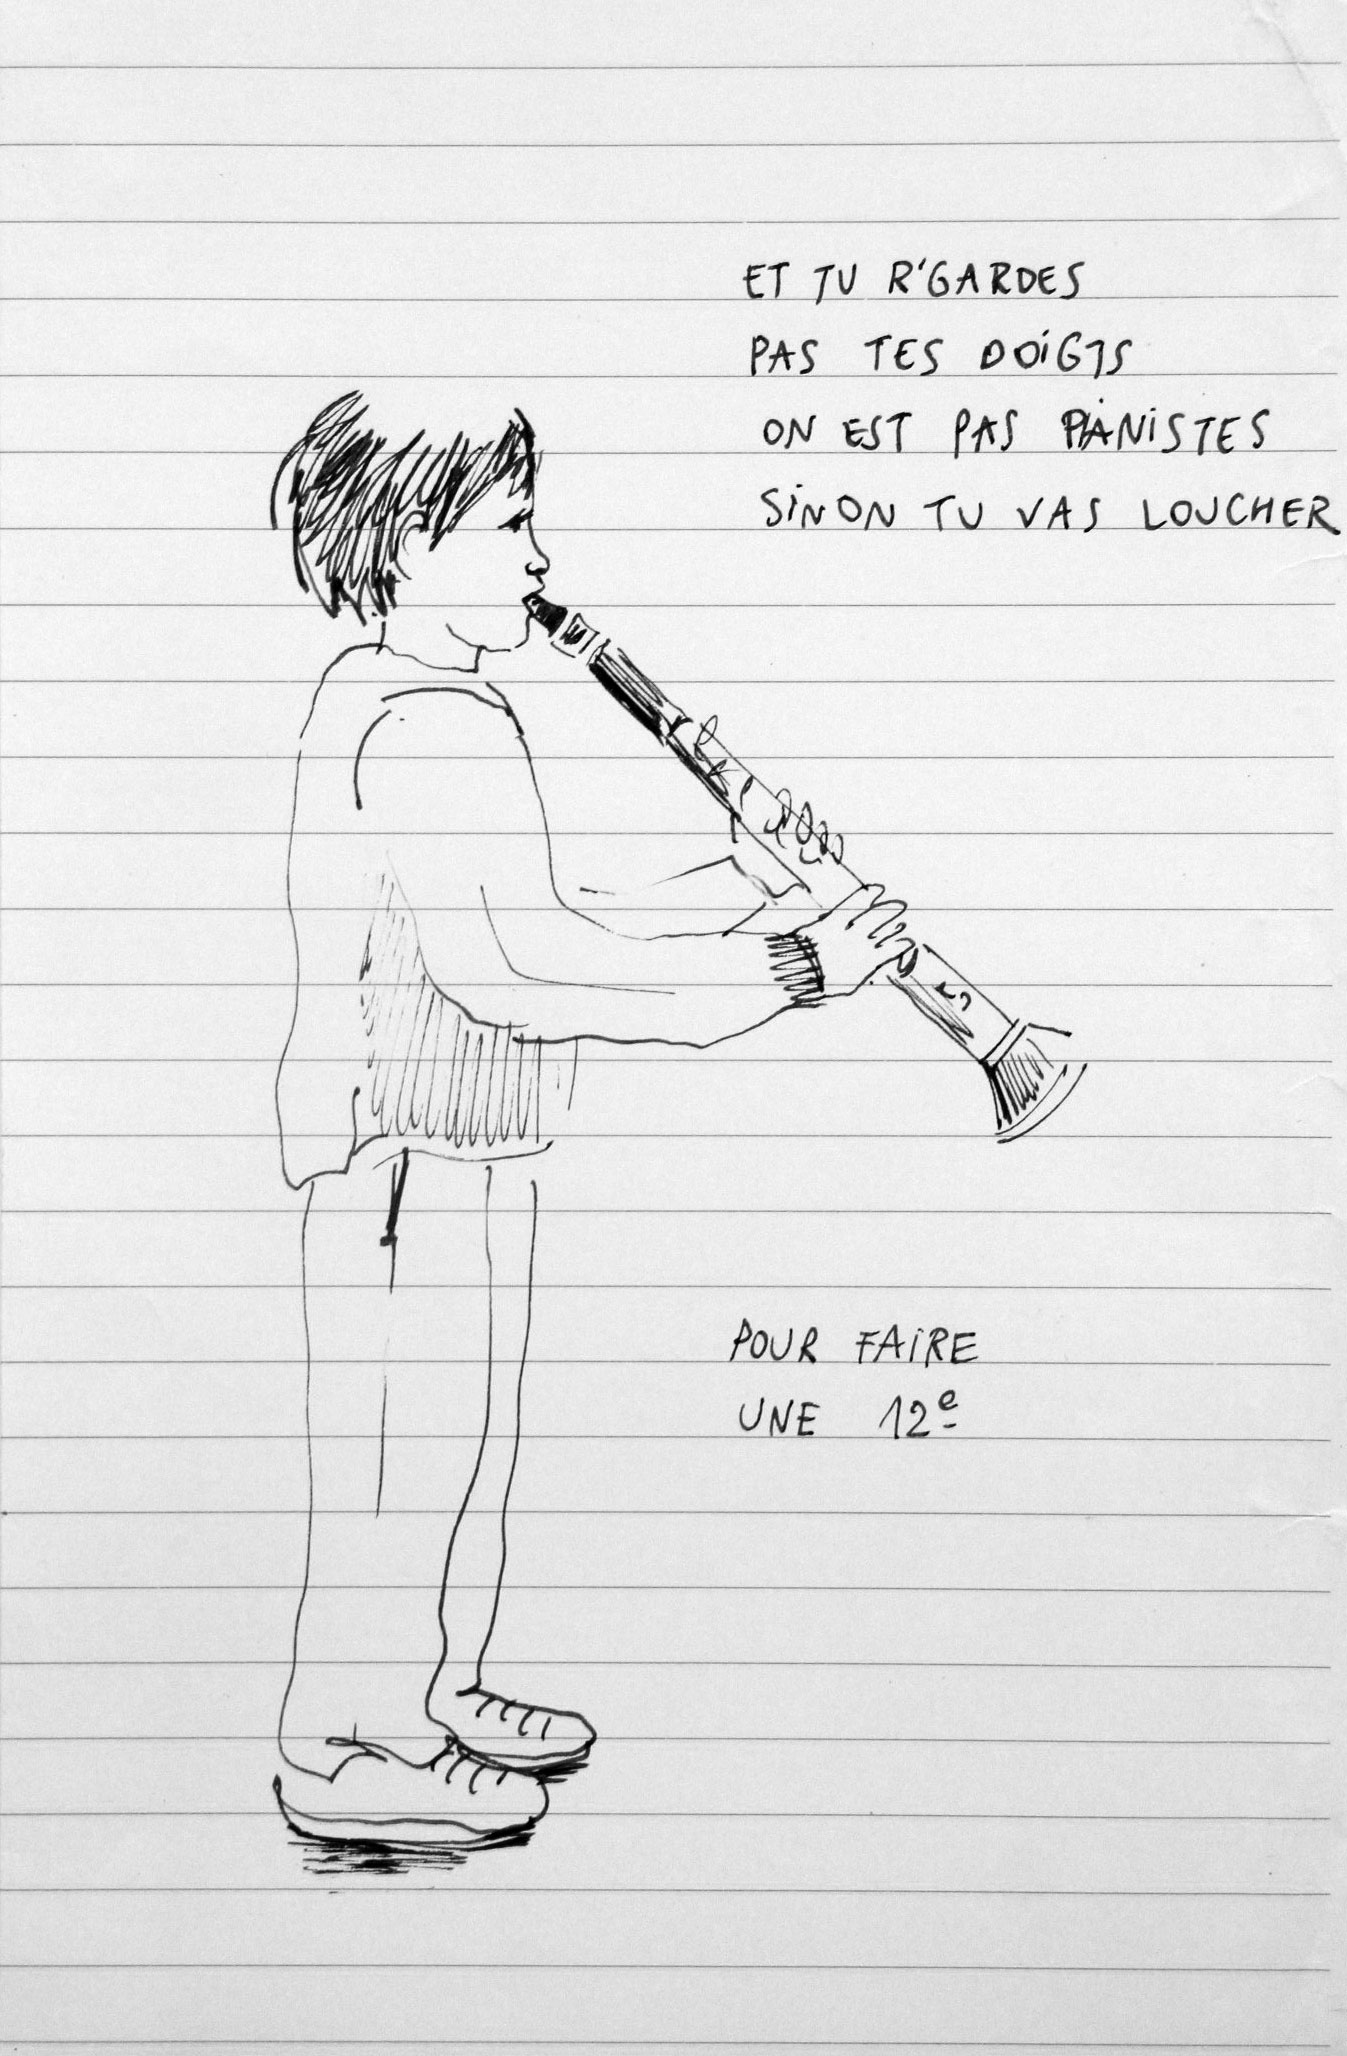 ET TU R'GARDES
PAS TES DOIGTS
ON EST PAS PIANISTES
SINON TU VAS LOUCHER
POUR FAIRE
UNE 12e